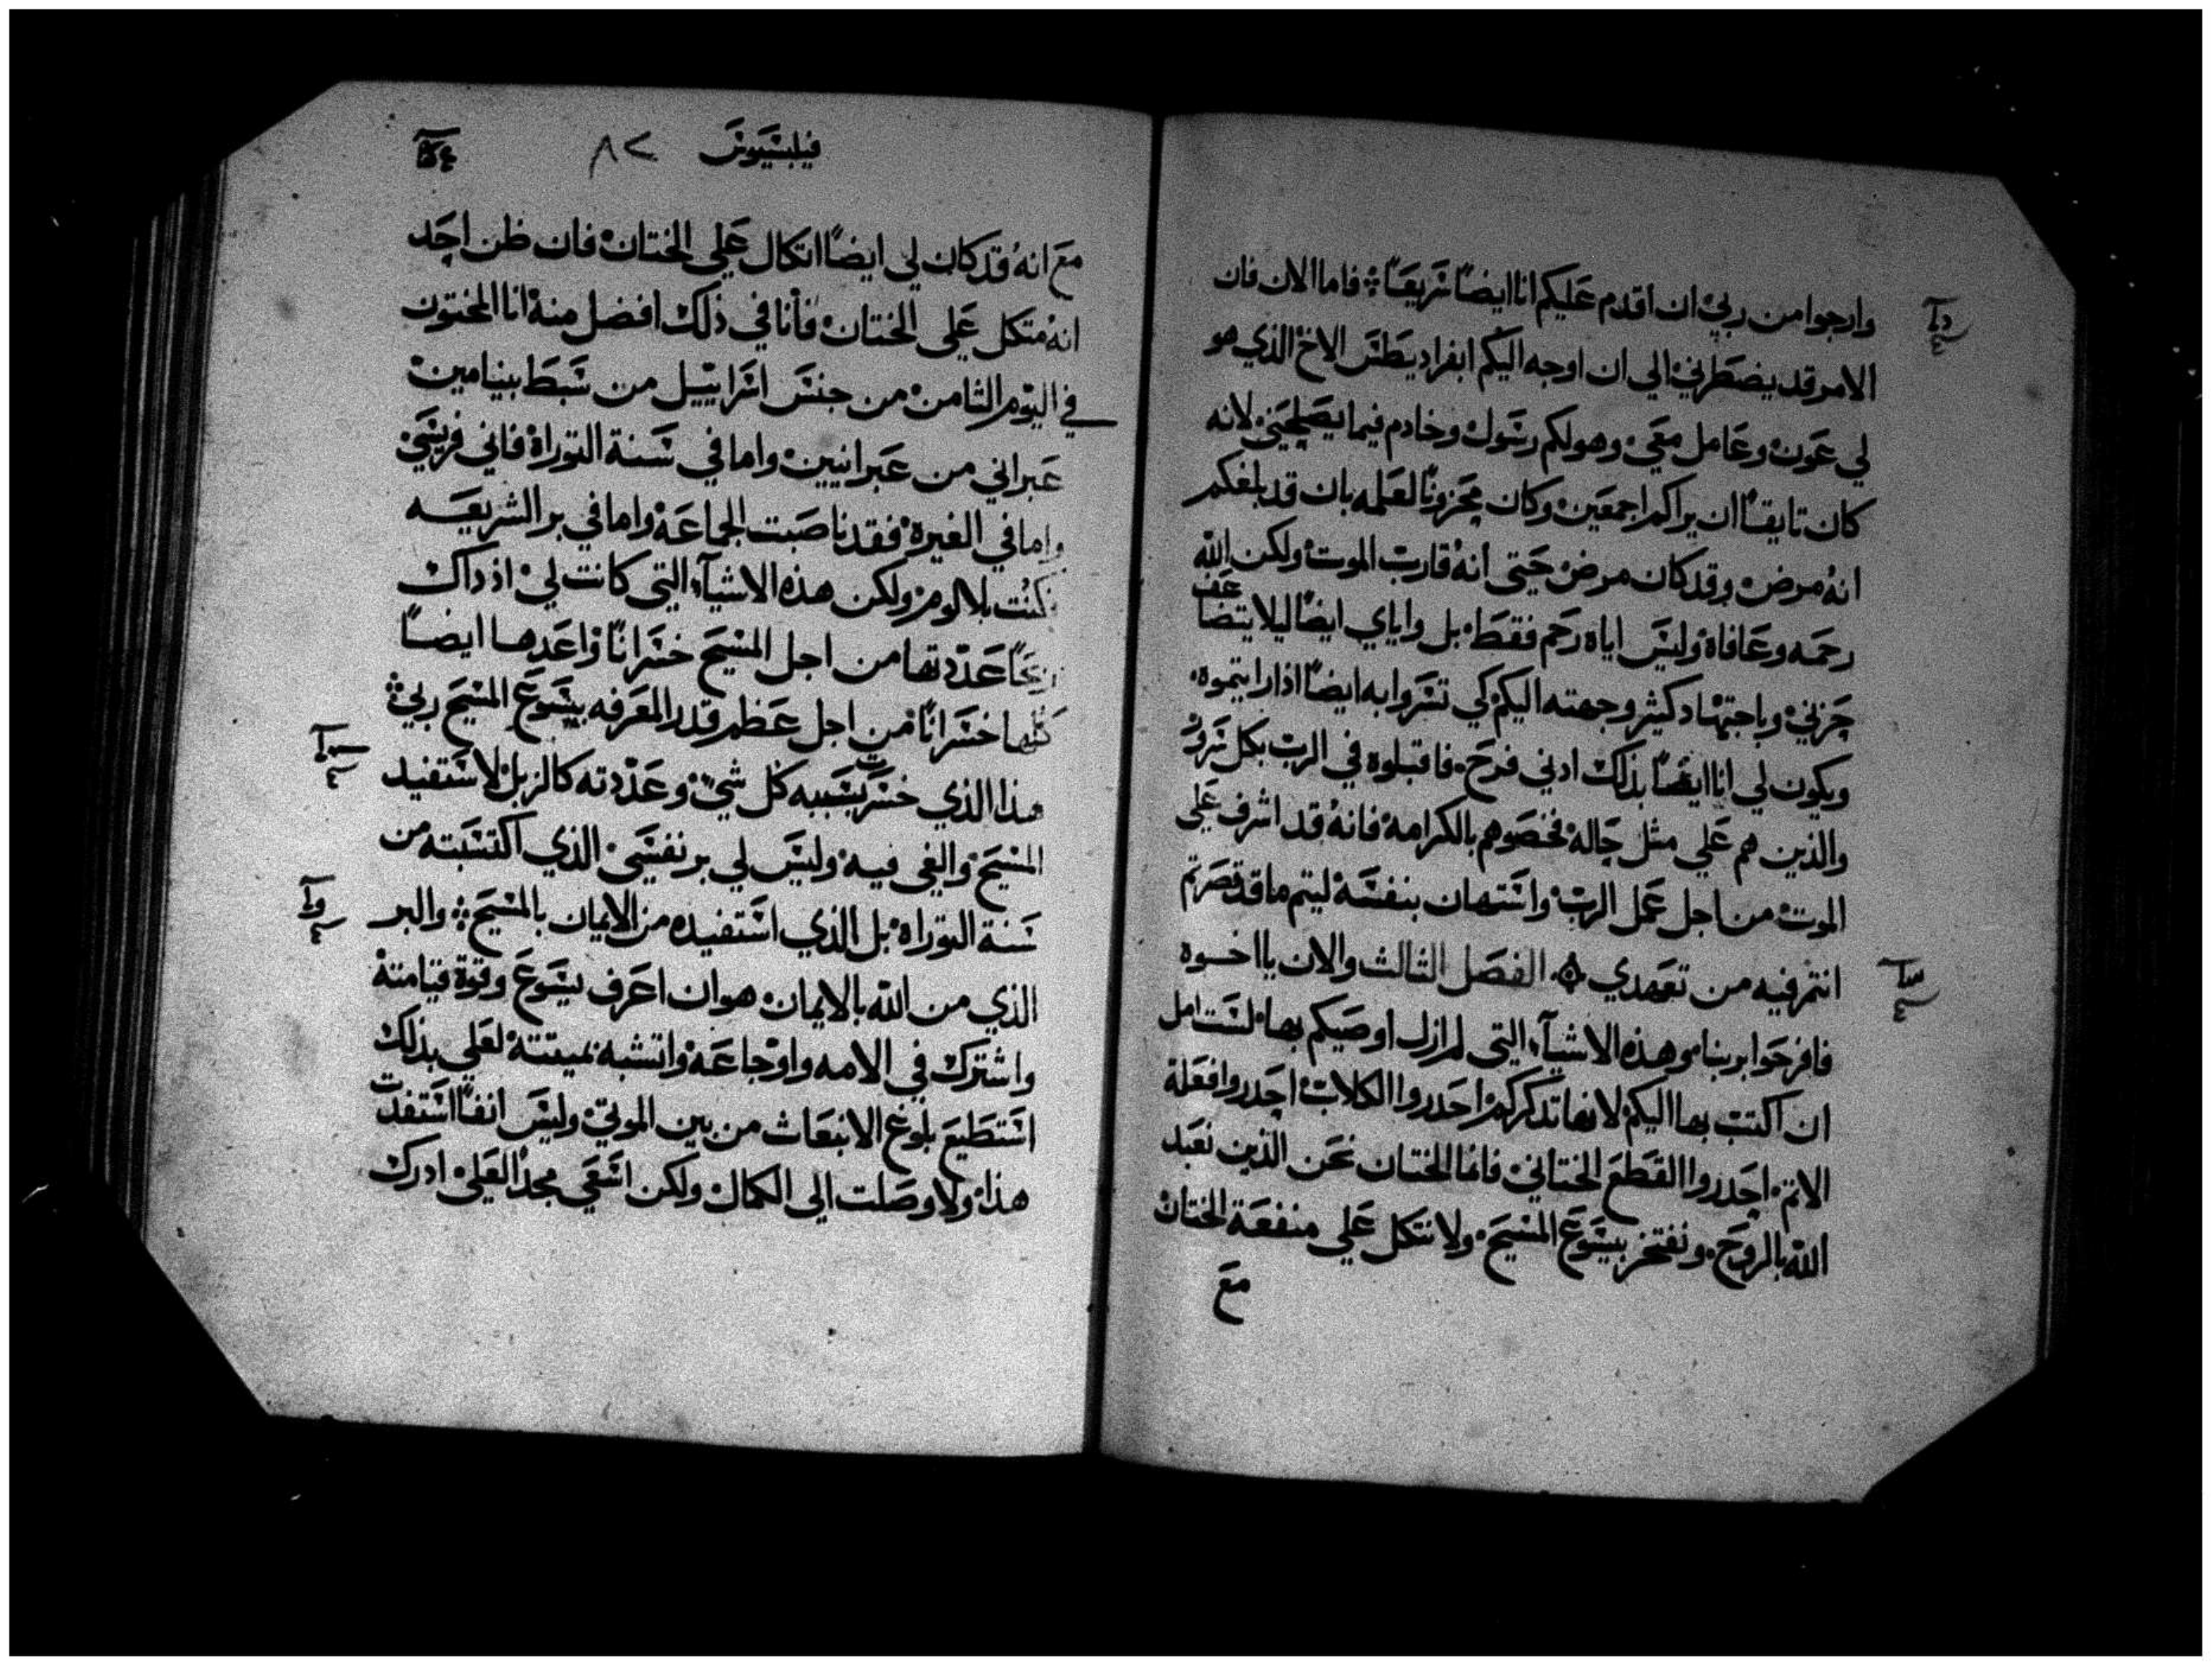 وارجوا من ربي ان اقدم عليكم انا ايضاً سريعاً فاما الان فان
الامر قد يضطرني الي ان اوجه اليكم ابفراديطس الاخ الذي هو
لي عون وعامل معي وهو لكم رسول وخادم فيما يصلحني لانه
كان تايقاً ان يراكم اجمعين وكان محزوناً لعلمه بان قد بلغكم
انه مرض وقد كان مرض حتي انه قارب الموت ولكن الله
رحمه وعافاه وليس اياه رحم فقط بل واياي ايضاً ليلا يتضاعف
حزني وباجتهاد كثير وجهته اليكم كي تسروا به ايضاً اذا رايتموه
ويكون لي انا ايضاً بذلك ادني فرح فاقبلوه في الرب بكل سرور
والذين هم علي مثل حاله فخصوهم بالكرامه فانه قد اشرف علي
الموت من اجل عمل الرب واستهان بنفسه ليتم ما قد قصرتم
انتم فيه من تعهدي الفصل الثالث والان يا اخوه
فافرحوا بربنا وهذه الاشيآء التي لم ازل اوصيكم بها لست امل
ان اكتب بها اليكم لانها تدكركم احدروا الكلاب احدروا فعلة
الاتم احدروا القطع الختاني فانما الختان نحن الذين نعبد
الله بالروح ونفتخر بيسوع المسيح ولا نتكل علي منفعة الختان
مع
فيلبسيوس ٨٢
مع انه قد كان لي ايضاً اتكال علي الختان فان ظن احد
انه متكل علي الختان فأنا في ذلك افضل منه انا المختون
في اليوم الثامن من جنس اسراييل من سبط بنيامين
عبراني من عبرانيين واما في سنة التوراة فاني فريسي
واما في الغيرة فقد ناصبت الجماعة واما في بر الشريعه
كنت بلا لوم ولكن هذه الاشيآء التي كانت لي اذ داك
ربحاً عددتها من اجل المسيح خسراناً واعدها ايضاً
كلها خسراناً من اجل عظم قدر المعرفه بيسوع المسيح ربي
هذا الذي خسرت بسببه كل شي وعددته كالزبل لاستفيد
المسيح والفي فيه وليس لي بر نفسي الذي اكتسبته من
سنة التوراه بل الذي استفيده من الايمان بالمسيح والبر
الذي من الله بالايمان هو ان اعرف يسوع وقوة قيامته
واشترك في الامه واوجاعه واتشبه بميتته لعلي بذلك
استطيع بلوغ الانبعاث من بين الموتي وليس انفاً استفدت
هذا ولا وصلت الي الكمال ولكن اسعي مجداً لعلي ادرك